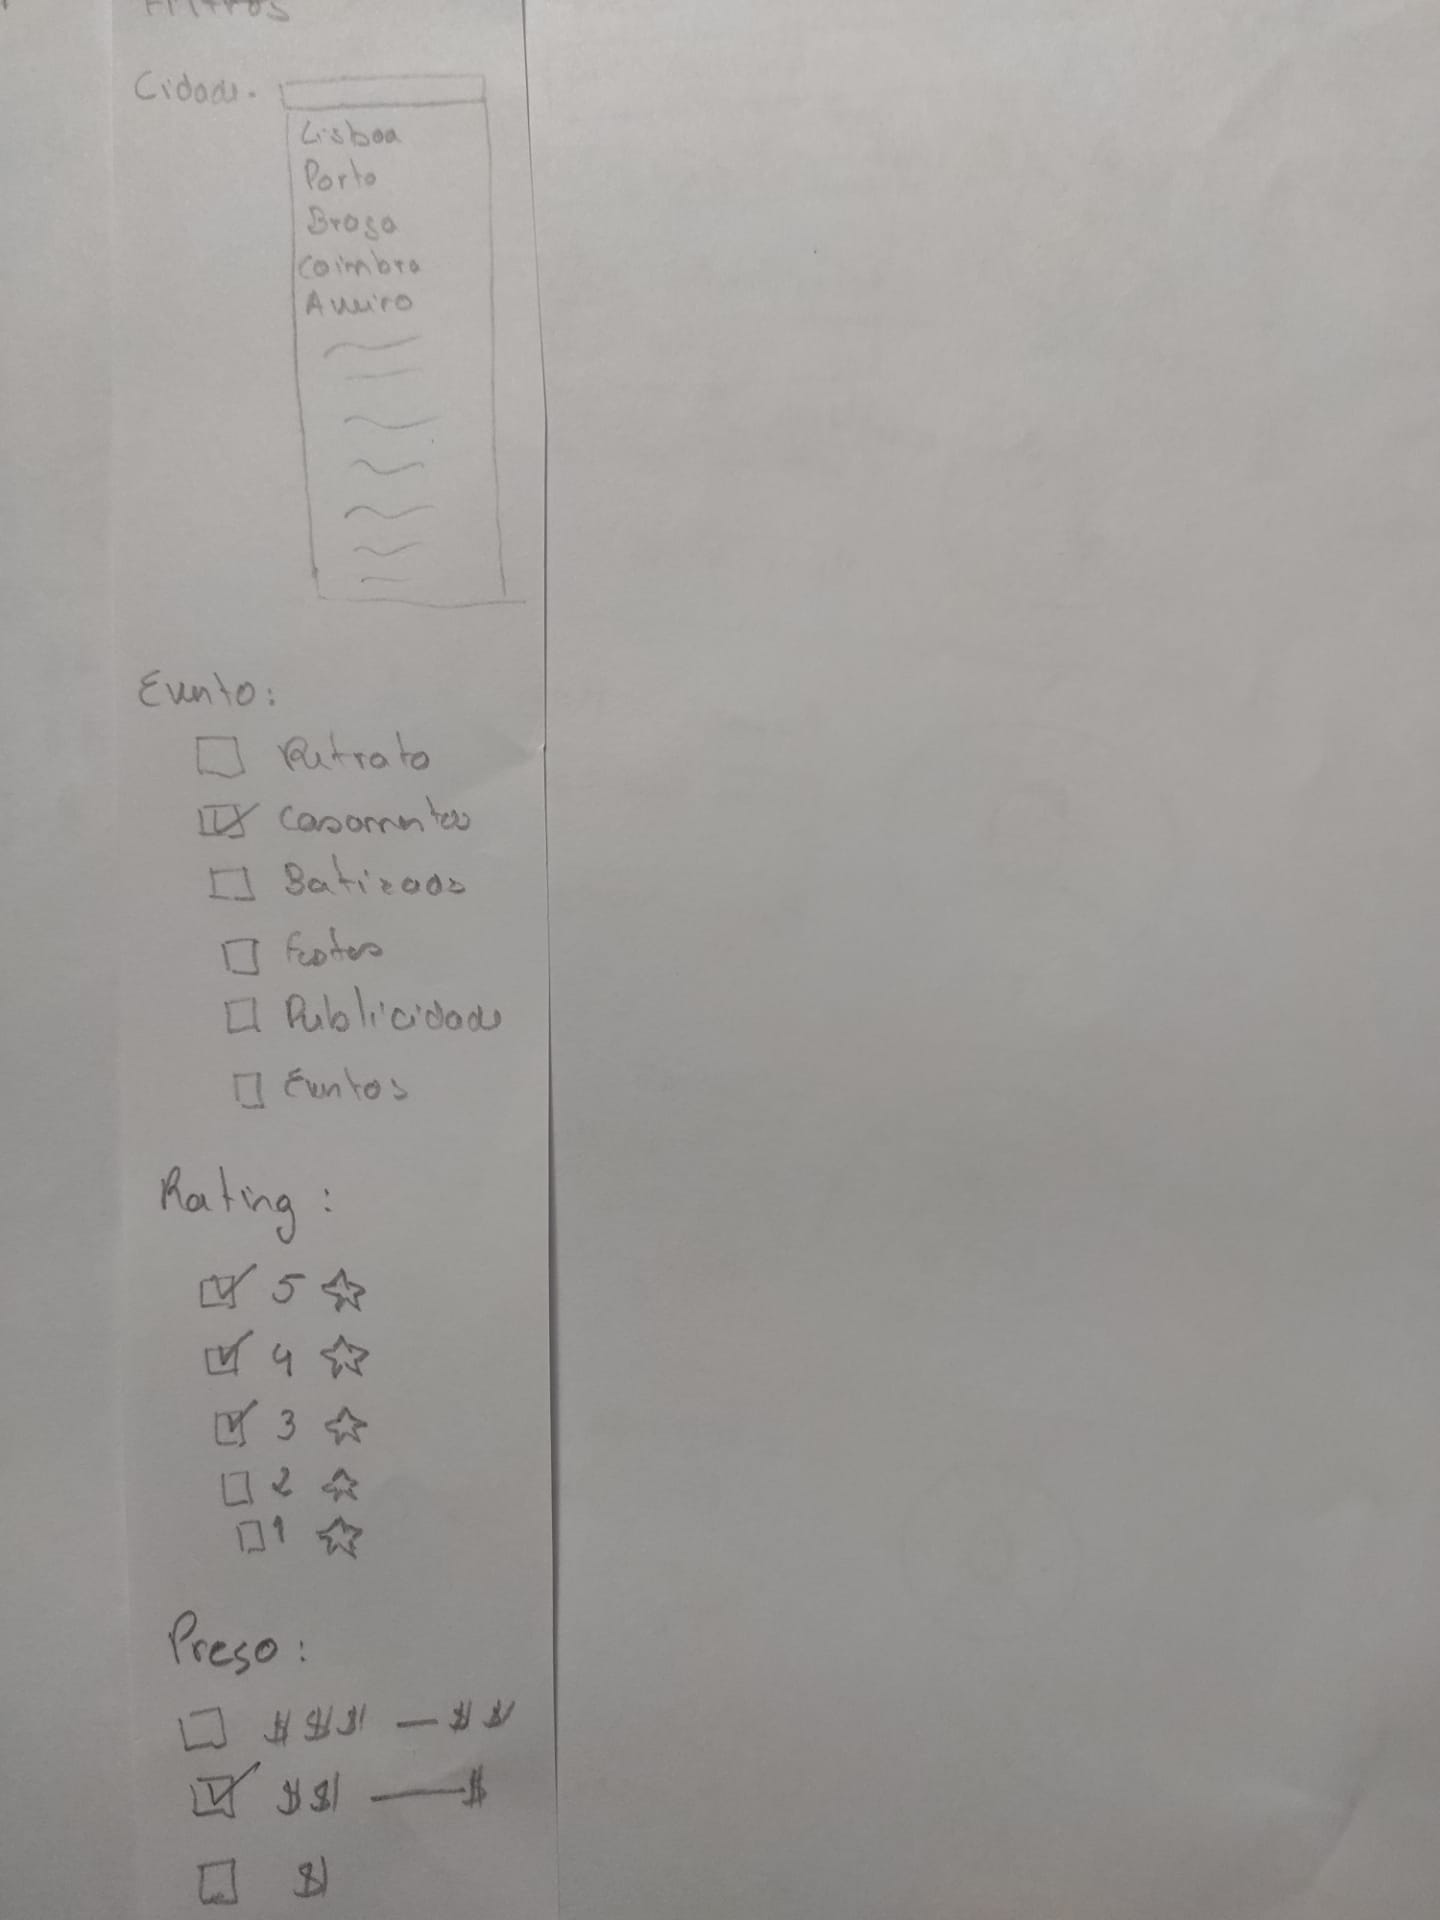 Filtros
Cidade.
Lisboa
Porto
Braga
Coimbra
Aveiro
Evento:
Retrato
Casamentos
Batizados
Festas
Publicidade
Eventos
Rating:
5
4
3
2
1
Preso:
$$$ — $$
$$ — $
$